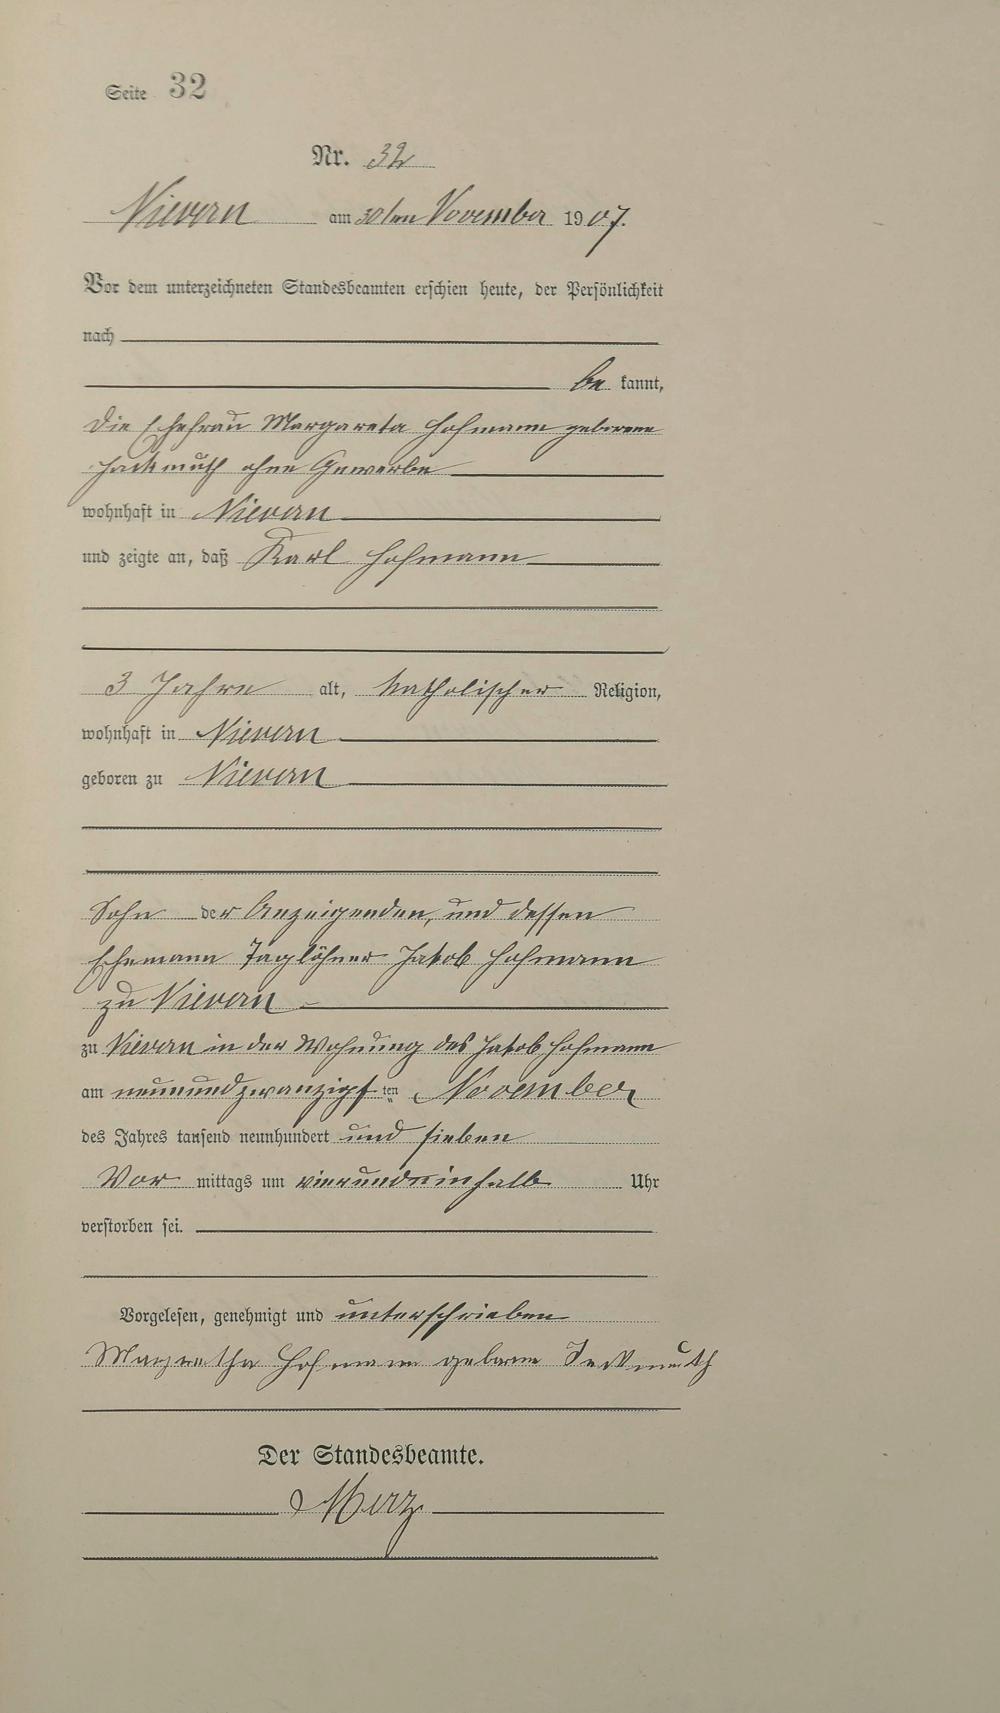 Seite 32
Nr. 32
Nievern am 30ten November 1907.
Vor dem unterzeichneten Standesbeamten erschien heute, der Persönlichkeit
nach
be kannt,
die Ehefrau Margareta Hofmann geborene
ohne Gewerbe
wohnhaft in Nievern
und zeigte an, daß Karl Hofmann
3 Jahre alt, katholischer Religion,
wohnhaft in Nievern
geboren zu Nievern
Sohn der Anzeigenden, und dessen
Ehemann Taglöhner Jakob Hofmann
zu Nievern
zu Nievern in der Wohnung des Jakob Hofmann
am neunundzwanzigsten November
des Jahres tausend neunhundert und sieben
Vor mittags um vierundeinhalb Uhr
verstorben sei.
Vorgelesen, genehmigt und unterschrieben
Margretha Hofmann geborne
Der Standesbeamte.
Merz